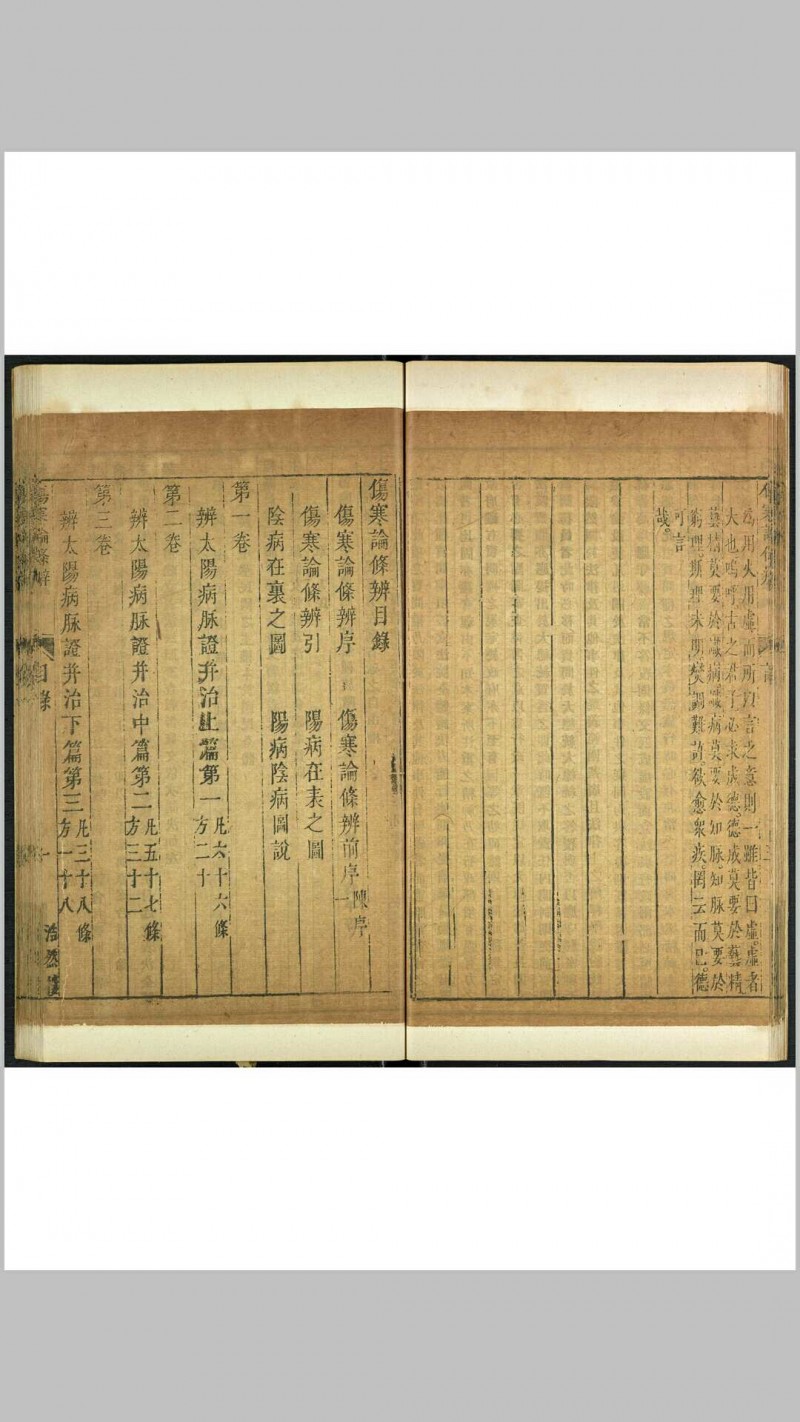 爲用火用虛而所以言之意則一雖皆曰虛虛者
大也嗚呼古之君子必求成德德成莫要於藝精
藝精莫要於識病識病莫要於知脉知脉莫要於
窮理斯理未明焚調難許欲愈衆疾罔云而已德
可言
哉
傷寒論條辨目錄
傷寒論條辨序 傷寒論條辨前序陳序一
傷寒論條辨引 陽病在表之圖
陰病在裏之圖 陽病陰病圖說
第一卷
辨太陽病脉證并治上篇第一凡六十六條方二十
第二卷
辨太陽病脉證并治中篇第二凡五十七條方三十二
第三卷
辨太陽病脉證并治下篇第三凡三十八條方一十八
傷寒論條辨 目錄 一 浩然樓